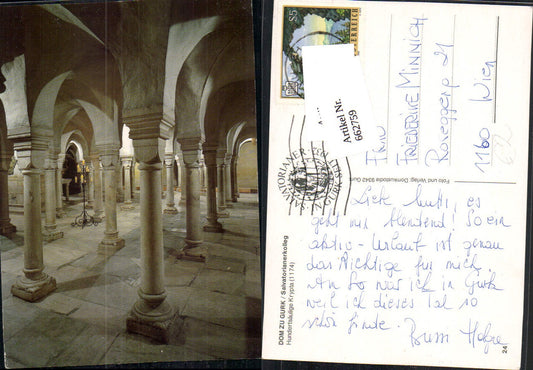 S5
ÖSTERREICH
Artikel Nr.
662759
SALVATORIANER
Frau
FRIEDERIKE MINNICH
Roseggerg 21
1160 Wien
Foto und Verlag: Dommuseole 9342 Gurk
DOM ZU GURK / Salvatorianerkolleg
Hundertsäulige Krypta (1174)
Liebe Mutti, es
geht mir blendend! So ein
aktiv-Urlaub ist genau
das Richtige für mich.
Am So war ich in Gurk
weil ich dieses Tal so
schön finde.
24